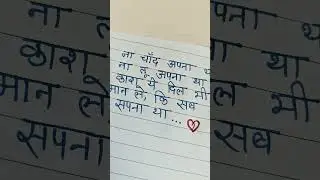 ना चाँद अपना था
ना तू अपना था
काश ये दिल भी
मान ले, कि सब
सपना था ...